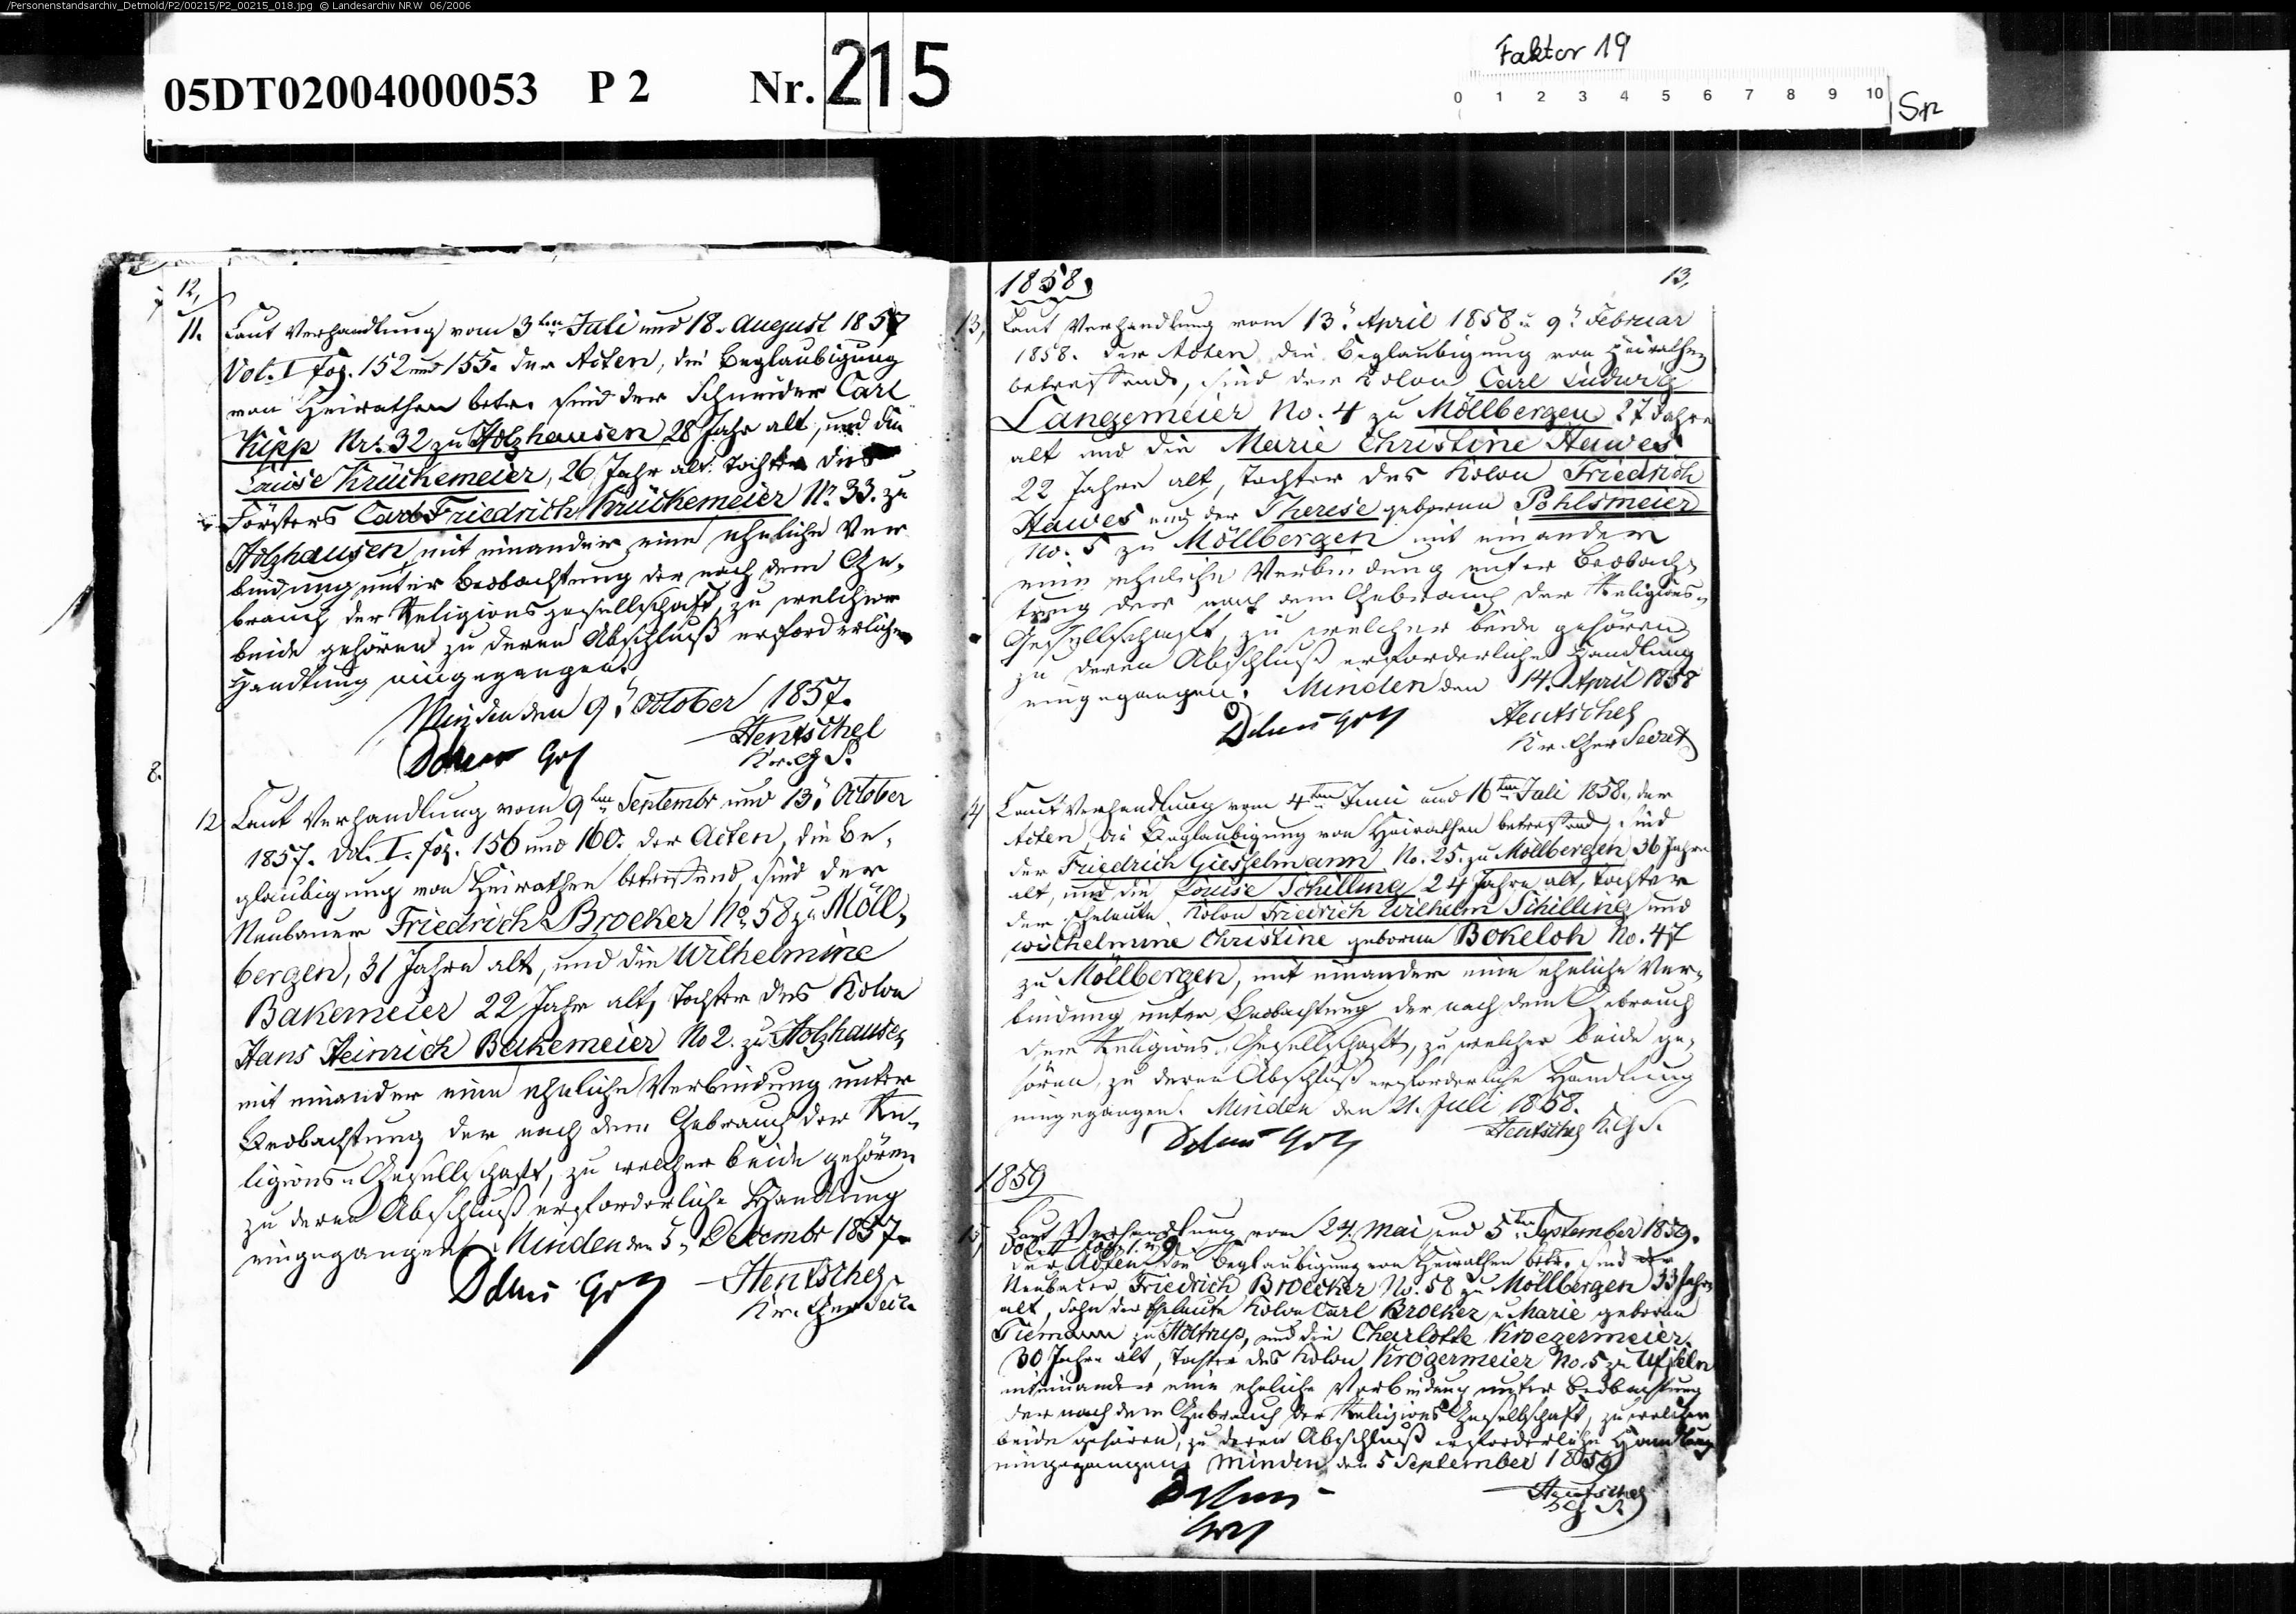 /Personenstandsarchiv_Detmold/P2/00215/P2_00215_018.jpg © Landesarchiv NRW 06/2006
05DT02004000053 P 2 Nr. 215
Faktor 19
0 1 2 3 4 5 6 7 8 9 10
12,
11. Laut Verhandlung vom 3ten Juli und 18. August 1857
Vol. I fog. 152 und 155. der Acten, die Beglaubigung
von Heirathen betr. sind der Schneider Carl
Kipp Nr. 32 zu Holzhausen 28 Jahr alt, und die
Louise Krückemeier, 26 Jahr alt. Tochter des
Försters Carl Friedrich Krückemeier Nr. 33. zu
Holzhausen mit einander eine eheliche Ver
bindung unter Beobachtung der nach dem Ge-
brauch der Religionsgesellschaft, zu welcher
beide gehören zu deren Abschluß erforderliche
Handlung eingegangen.
Minden den 9. October 1857.
Hentschel
Kr. G S.
8.
12 Laut Verhandlung vom 9ten Septembr und 13. October
1857. Vol. I. fog. 156 und 160. der Acten, die Be-
glaubigung von Heirathen betreffend, sind der
Neubauer Friedrich Broeker No 58 zu Möll-
bergen, 31 Jahre alt, und die Wilhelmine
Bakemeier 22 Jahr alt, Tochter des Kolon
Hans Heinrich Bakemeier No 2. zu Holzhausen
mit einander eine eheliche Verbindung unter
Beobachtung der nach dem Gebrauch der Re-
ligions-Gesellschaft, zu welcher beide gehören
zu deren Abschluß erforderliche Handlung
eingegangen. Minden den 5. Decembr 1857.
Hentschel
Kr. Ger Secr.
1858. 13.
13, Laut Verhandlung vom 13. April 1858 u 9. Februar
1858. der Acten die Beglaubigung von Heirathen
betreffend, sind der Kolon Carl Ludwig
Langemeier No. 4 zu Möllbergen 27 Jahre
alt und die Marie Christine Hawes
22 Jahre alt, Tochter des Kolon Friedrich
Hawes und der Therese geborne Pohlsmeier
No. 5 zu Möllbergen mit einander
eine eheliche Verbindung unter Beobach-
tung der nach dem Gebrauch der Religions-
Gesellschaft, zu welcher beide gehören
zu deren Abschluß erforderliche Handlung
eingegangen. Minden den 14. April 1858
Hentschel
Kr. Ger Secret
14 Laut Verhandlung vom 4ten Juni und 16ten Juli 1858, der
Acten die Beglaubigung von Heirathen betreffend, sind
der Friedrich Giesselmann No. 25. zu Möllbergen, 36 Jahre
alt, und die Louise Schilling 24 Jahre alt, Tochter
der Eheleute Kolon Friedrich Wilhelm Schilling und
Wilhelmine Christine geborne Bokeloh No. 47
zu Möllbergen, mit einander eine eheliche Ver-
bindung unter Beobachtung der nach dem Gebrauch
der Religions-Gesellschaft, zu welcher beide ge-
hören, zu deren Abschluß erforderliche Handlung
eingegangen. Minden den 21. Juli 1858.
Hentschel K.G.S.
1859
15, Laut Verhandlung vom 24. Mai und 5ten September 1859.
der Acten die Beglaubigung von Heirathen betr. sind der
Neubauer Friedrich Broecker No. 58 zu Möllbergen 33 Jahre
alt, Sohn der Eheleute Kolon Carl Broeker u Marie geborne
Tiemann zu Holtrup, und die Charlotte Kroegermeier
30 Jahre alt, Tochter des Kolon Krögermeier No. 5 zu Uffeln
miteinander eine eheliche Verbindung unter Beobachtung
der nach dem Gebrauch der Religions Gesellschaft, zu welcher
beide gehören, zu deren Abschluß erforderliche Handlung
eingegangen, Minden den 5 September 1859
Hentschel